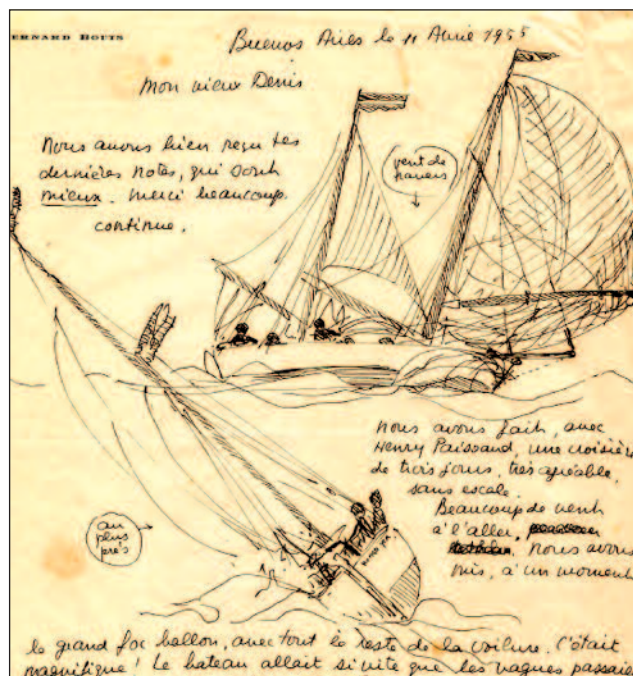 ERNARD BOUTS
Buenos Aires le 11 Avril 1955
mon vieux Denis
Nous avons bien reçu tes
dernières notes, qui sont
mieux. merci beaucoup.
continue.
vent de
travers
Nous avons fait, avec
Henry Paissand, une croisière
de trois jours, très agréable,
sans escale.
Beaucoup de vent
à l'aller,
Nous avons
mis, à un moment
au
plus
près
le grand foc ballon, avec tout le reste de la voilure. C'était
magnifique! Le bateau allait si vite que les vagues passaie